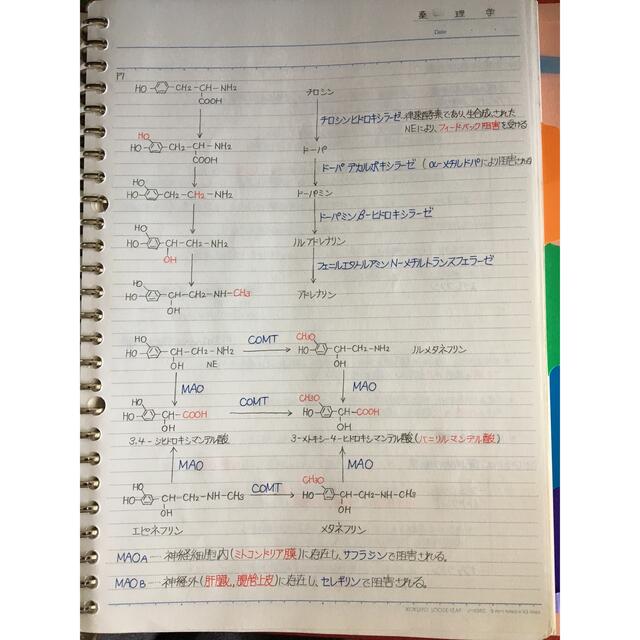 薬理学
Date
HO CH2-CH-NH2 チロシン
COOH
チロシンヒドロキシラーゼ…律速酵素であり、生合成された
NEにより、フィードバック阻害を受ける
HO
HO CH2-CH-NH2 ドーパ
COOH
ドーパデカルボキシラーゼ (α-メチルドパにより阻害される
HO
HO CH2-CH2-NH2 ドーパミン
ドーパミンβ-ヒドロキシラーゼ
HO
HO CH-CH2-NH2 ノルアドレナリン
OH
フェニルエタノールアミンN-メチルトランスフェラーゼ
HO
HO CH-CH2-NH-CH3 アドレナリン
OH
HO COMT CH3O
HO CH-CH2-NH2 HO CH-CH2-NH2 ノルメタネフリン
OH NE OH
MAO MAO
HO COMT CH3O
HO CH-COOH HO CH-COOH
OH OH
3,4-ジヒドロキシマンデル酸 3-メトキシ-4-ヒドロキシマンデル酸(バニリルマンデル酸)
MAO MAO
HO COMT CH3O
HO CH-CH2-NH-CH3 HO CH-CH2-NH-CH3
OH OH
エピネフリン メタネフリン
MAOA…神経細胞内(ミトコンドリア膜)に存在し、サフラジンで阻害される。
MAOB…神経外(肝臓、腸管上皮)に存在し、セレギリンで阻害される。